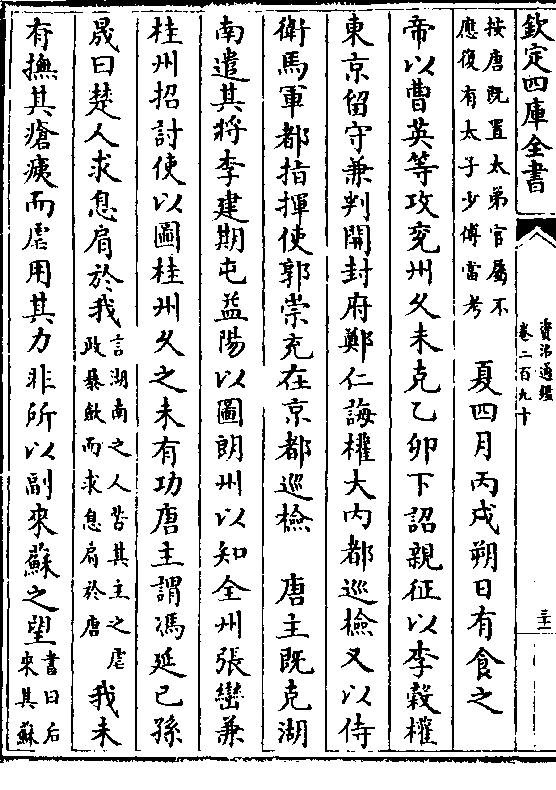 欽定四庫全書
資治通鑑
卷二百九十
三十一
按唐既置太弟官屬不
應復有太子少傅當考
夏四月丙戌朔日有食之
帝以曹英等攻兗州久未克乙卯下詔親征以李榖權
東京留守兼判開封府鄭仁誨權大內都巡檢又以侍
衛馬軍都指揮使郭崇充在京都巡檢　唐主既克湖
南遣其將李建期屯益陽以圖朗州以知全州張巒兼
桂州招討使以圖桂州久之未有功唐主謂馮延巳孫
晟曰楚人求息肩於我
言湖南之人苦其主之虐
政暴斂而求息肩於唐
我未
有撫其瘡痍而虐用其力非所以副來蘇之望
書曰后
來其蘇